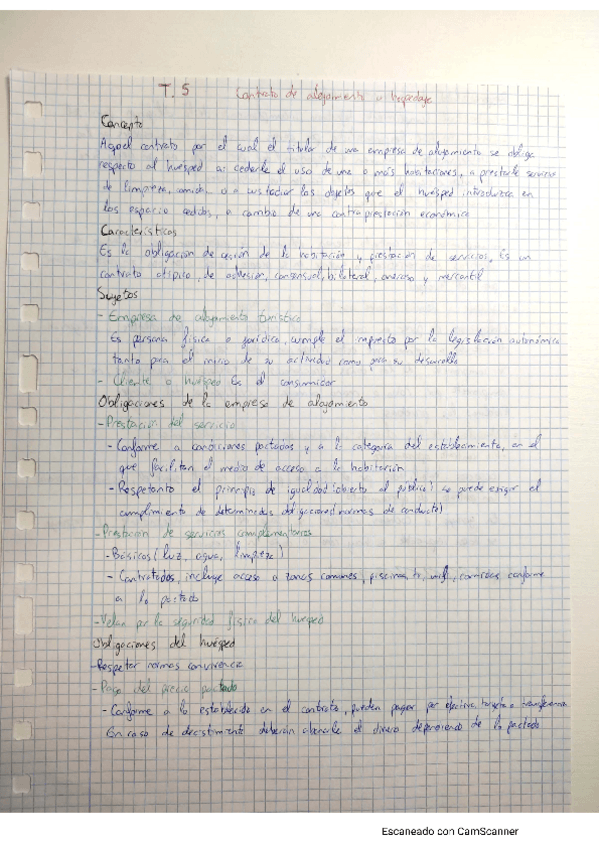 T. 5 Contrato de alojamiento u hospedaje
Concepto
Aquel contrato por el cual el titular de una empresa de alojamiento se obliga
respecto al huésped a: cederle el uso de una o más habitaciones, a prestarle servicios
de limpieza, comida, o a custodiar los objetos que el huésped introduzca en
los espacio cedidos, a cambio de una contraprestación económica
Características
Es la obligación de cesión de la habitación y prestación de servicios, Es un
contrato atípico, de adhesión, consensual, bilateral, oneroso y mercantil
Sujetos
- Empresa de alojamiento turístico
Es persona física o jurídica, cumple el impuesto por la legislación autonómica
tanto para el inicio de su actividad como para su desarrollo
- Cliente o huésped Es el consumidor
Obligaciones de la empresa de alojamiento
- Prestación del servicio
- Conforme a condiciones pactadas y a la categoría del establecimiento, en el
que facilitan el medio de acceso a la habitación
- Respetanto el principio de igualdad (abierto al público) se puede exigir el
cumplimiento de determinadas obligaciones (normas de conducta)
- Prestación de servicios complementarios
- Básicos (luz, agua, limpieza)
- Contratados, incluye acceso a zonas comunes, piscinas, tv, wifi, comidas conforme
a lo pactado
- Velar por la seguridad física del huésped
Obligaciones del huésped
- Respetar normas convivencia
- Pago del precio pactado
- Conforme a lo establecido en el contrato, pueden pagar por efectivo, tarjeta o transferencia
En caso de desistimiento deberán el dinero de lo pactado
Escaneado con CamScanner